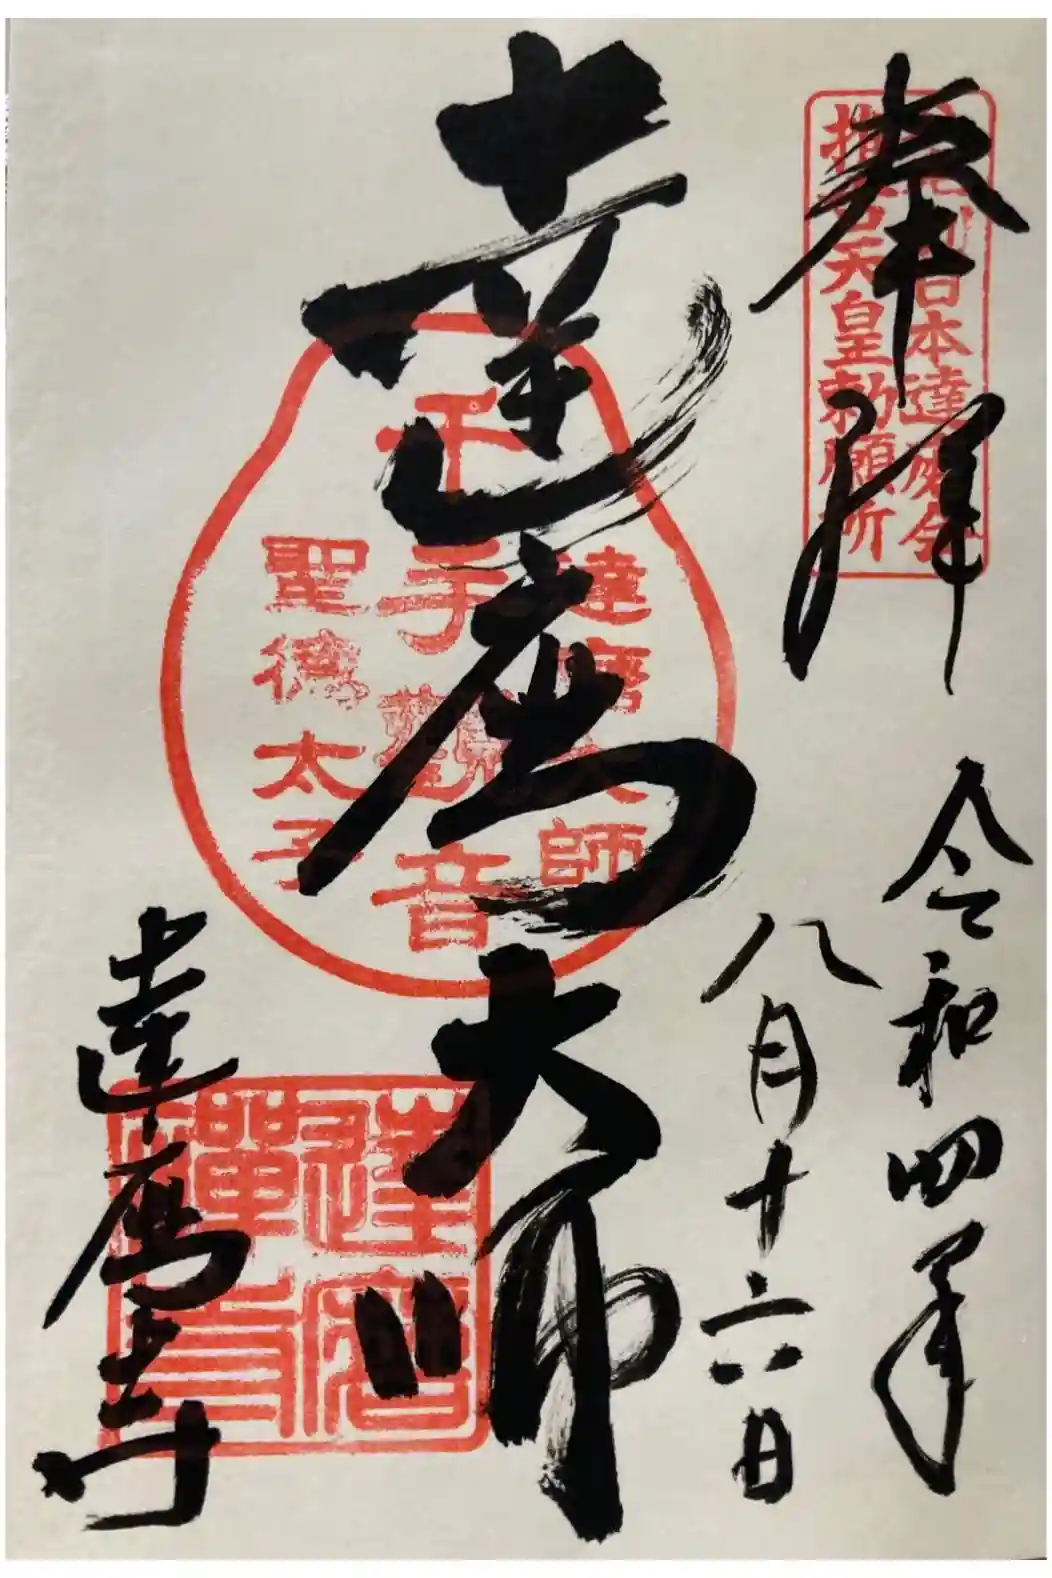 奉拝
日本達磨会
推古天皇勅願所
令和四年
八月十六日
達磨大師
達磨大師
千手観音
聖徳太子
達磨寺
達磨
禅寺